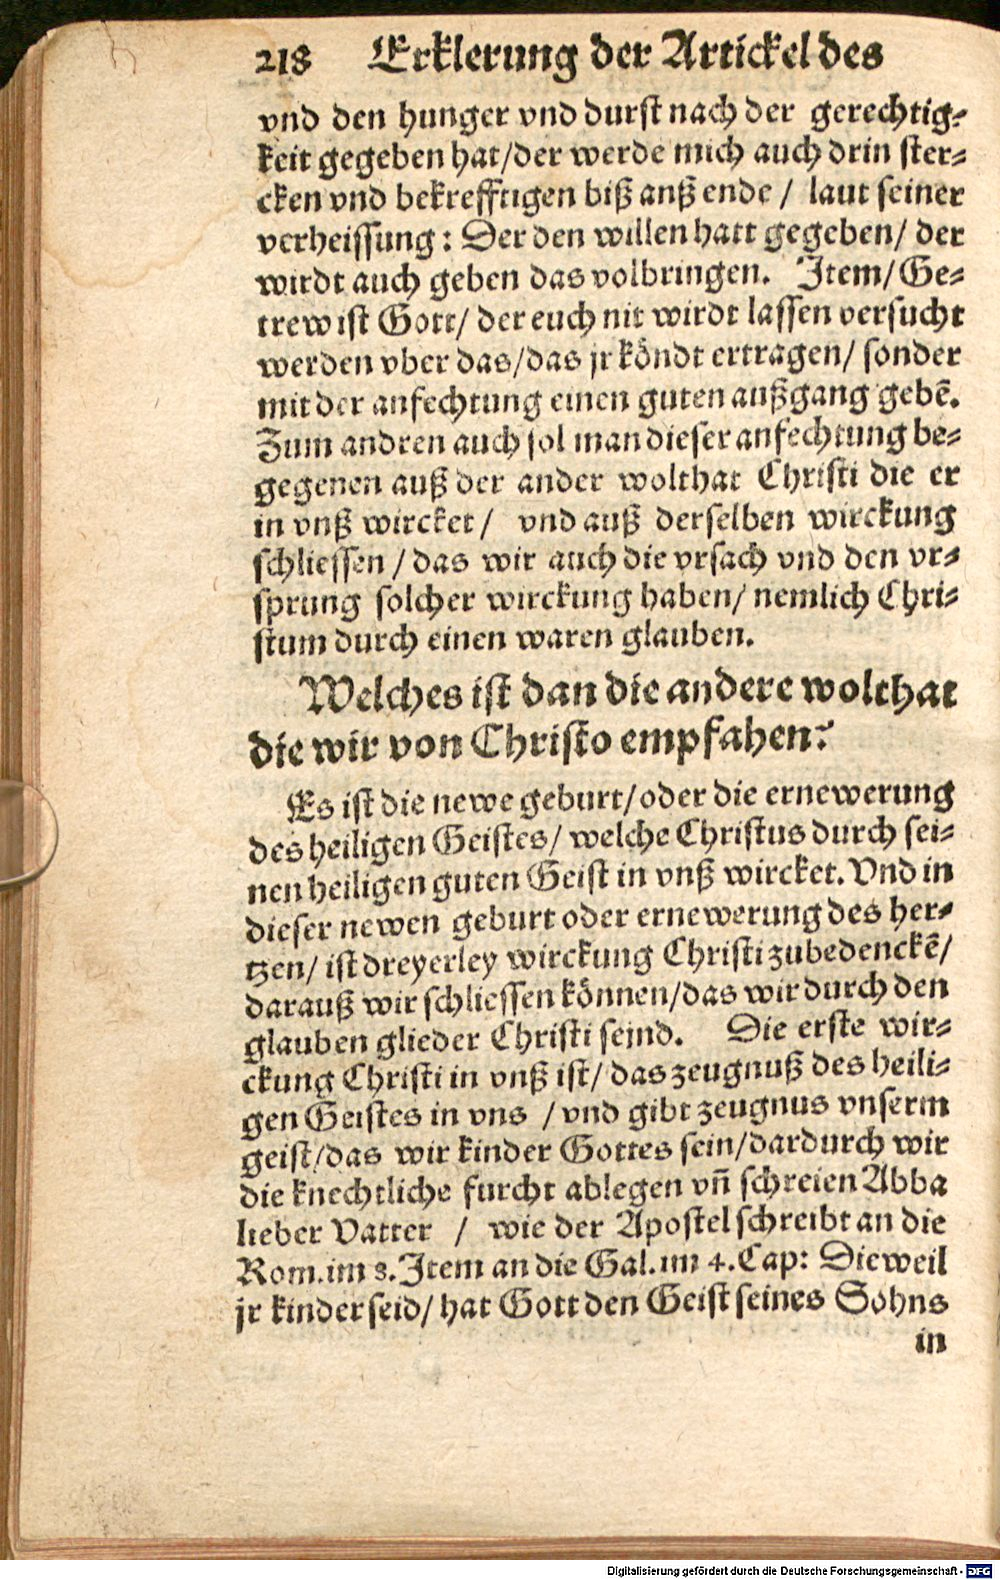 218 Erklerung der Artickel des
vnd den hunger vnd durst nach der gerechtig-
keit gegeben hat/der werde mich auch drin ster-
cken vnd bekrefftigen biß anß ende / laut seiner
verheissung: Der den willen hatt gegeben/ der
wirdt auch geben das volbringen. Item/ Ge-
trew ist Gott/ der euch nit wirdt lassen versucht
werden vber das/das jr köndt ertragen/ sonder
mit der anfechtung einen guten außgang gebē.
Zum andren auch sol man dieser anfechtung be-
gegenen auß der ander wolthat Christi die er
in vnß wircket / vnd auß derselben wirckung
schliessen / das wir auch die vrsach vnd den vr-
sprung solcher wirckung haben/ nemlich Chri-
stum durch einen waren glauben.
Welches ist dan die andere wolthat
die wir von Christo empfahen?
Es ist die newe geburt/oder die ernewerung
des heiligen Geistes/ welche Christus durch sei-
nen heiligen guten Geist in vnß wircket. Vnd in
dieser newen geburt oder ernewerung des her-
tzen/ ist dreyerley wirckung Christi zubedenckē/
darauß wir schliessen können/das wir durch den
glauben glieder Christi seind. Die erste wir-
ckung Christi in vnß ist/ das zeugnuß des heili-
gen Geistes in vns / vnd gibt zeugnus vnserm
geist/das wir kinder Gottes sein/dardurch wir
die knechtliche furcht ablegen vñ schreien Abba
lieber Vatter / wie der Apostel schreibt an die
Rom.im 8. Item an die Gal.im 4. Cap: Dieweil
jr kinder seid/ hat Gott den Geist seines Sohns
in
Digitalisierung gefördert durch die Deutsche Forschungsgemeinschaft - DFG